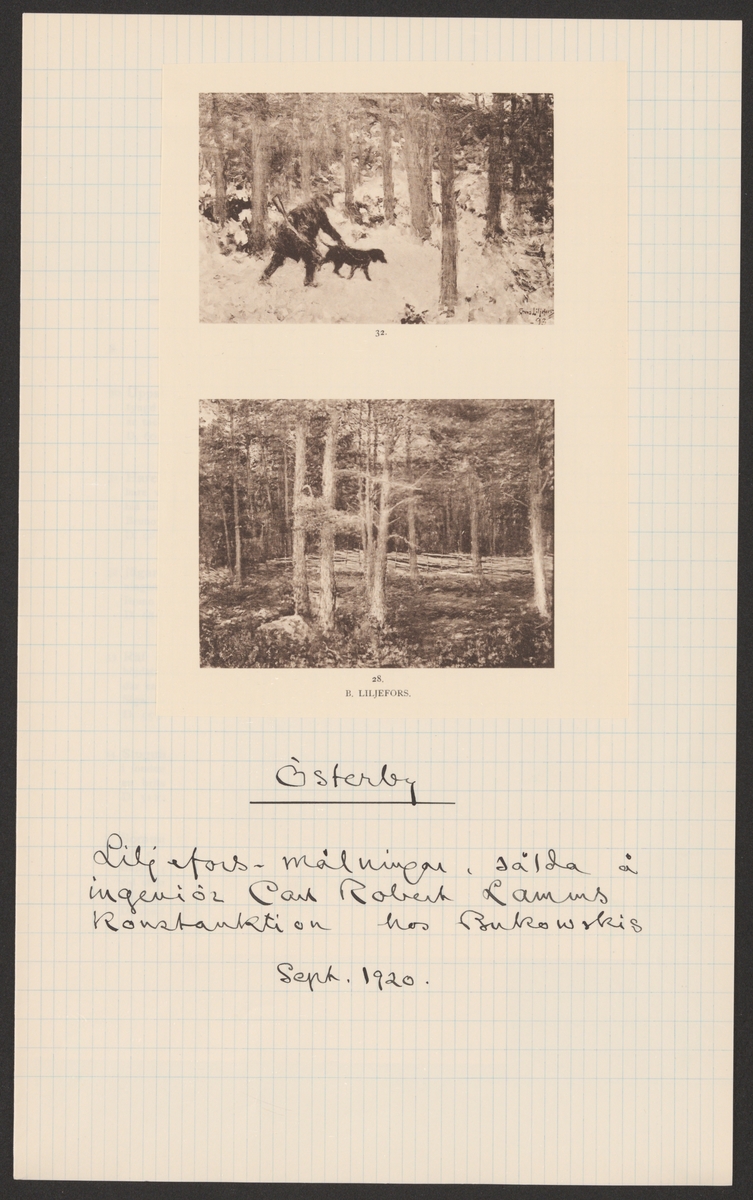 32.
28.
B. LILJEFORS.
Österby
Liljefors-målningar, sålda å
ingeniör Carl Robert Lamms
Konstauktion hos Bukowskis
Sept. 1920.